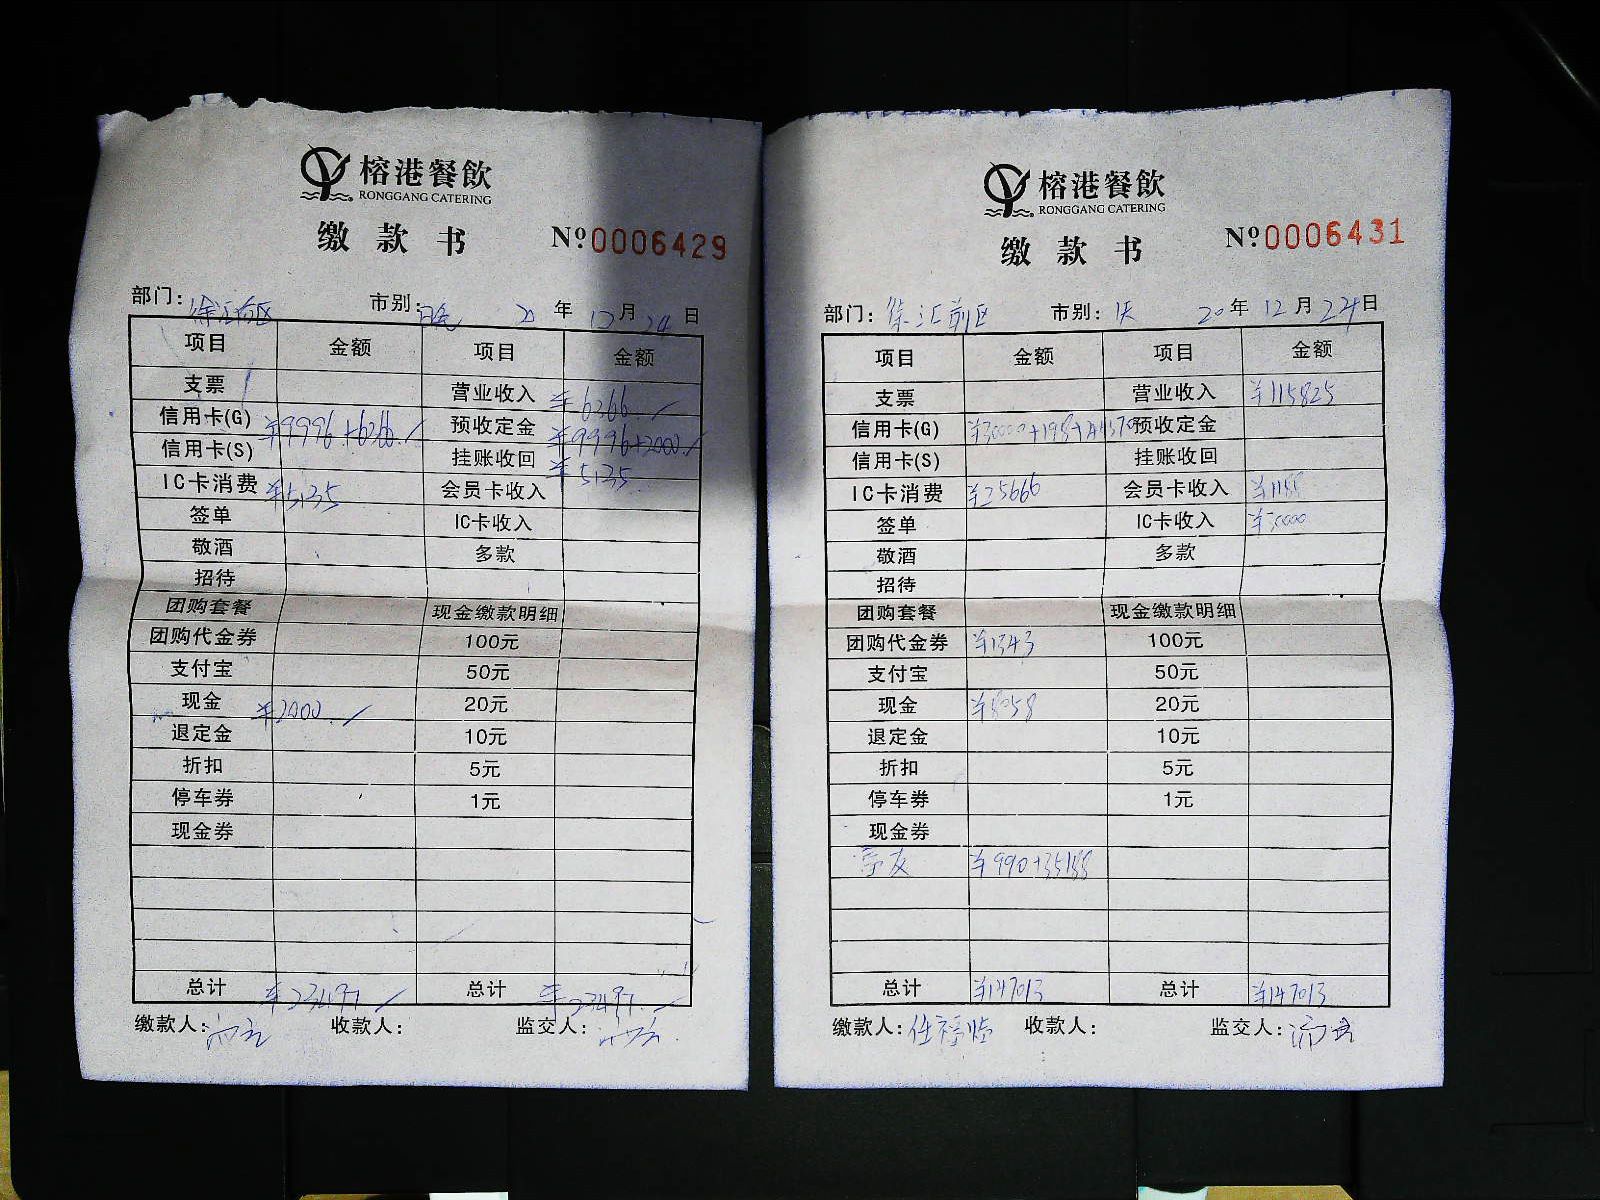 榕港餐飲
RONGGANG CATERING
缴款书 №0006429
部门: 徐汇前区 市别: 20年12月24日
项目 金额 项目 金额
支票 营业收入 ¥6366
信用卡(G) ¥9996+6366 预收定金 ¥9996+2000
信用卡(S) 挂账收回 ¥5135
IC卡消费 ¥5135 会员卡收入
签单 IC卡收入
敬酒 多款
招待
团购套餐 现金缴款明细
团购代金券 100元
支付宝 50元
现金 ¥2000 20元
退定金 10元
折扣 5元
停车券 1元
现金券
总计 ¥23497 总计 ¥23497
缴款人: 收款人: 监交人:
榕港餐飲
RONGGANG CATERING
缴款书 №0006431
部门: 徐汇前区 市别: 20年12月24日
项目 金额 项目 金额
支票 营业收入 ¥115825
信用卡(G) ¥30000+198+ 预收定金
信用卡(S) 挂账收回
IC卡消费 ¥25666 会员卡收入 ¥1188
签单 IC卡收入 ¥30000
敬酒 多款
招待
团购套餐 现金缴款明细
团购代金券 ¥1343 100元
支付宝 50元
现金 ¥8058 20元
退定金 10元
折扣 5元
停车券 1元
现金券
¥990+35188
总计 ¥147013 总计 ¥147013
缴款人: 收款人: 监交人: